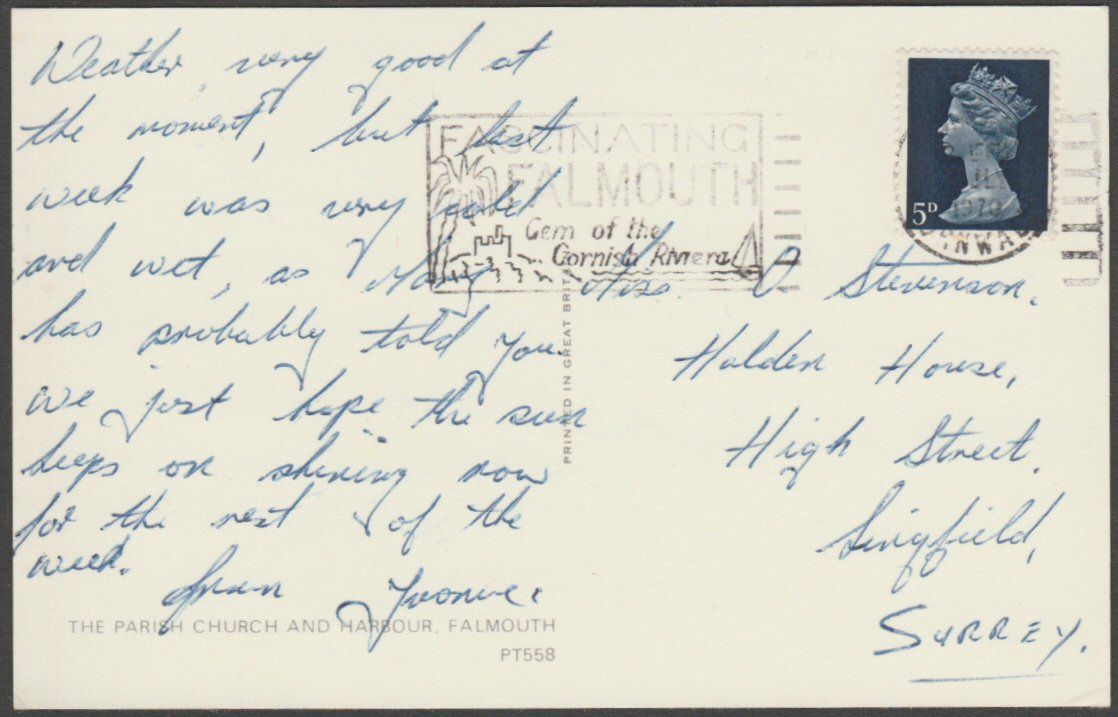 Weather very good at
the moment, but last
week was very cold
and wet, as Mary
has probably told you.
we just hope the sun
keeps on shining now
for the rest of the
week.
from Yvonne.
THE PARISH CHURCH AND HARBOUR, FALMOUTH
PT558
PRINTED IN GREAT BRIT
FASCINATING
FALMOUTH
Gem of the
Cornish Riviera
5D
1970
CORNWALL
Miss. D Stevenson.
Halden House,
High Street.
Lingfield,
SURREY.